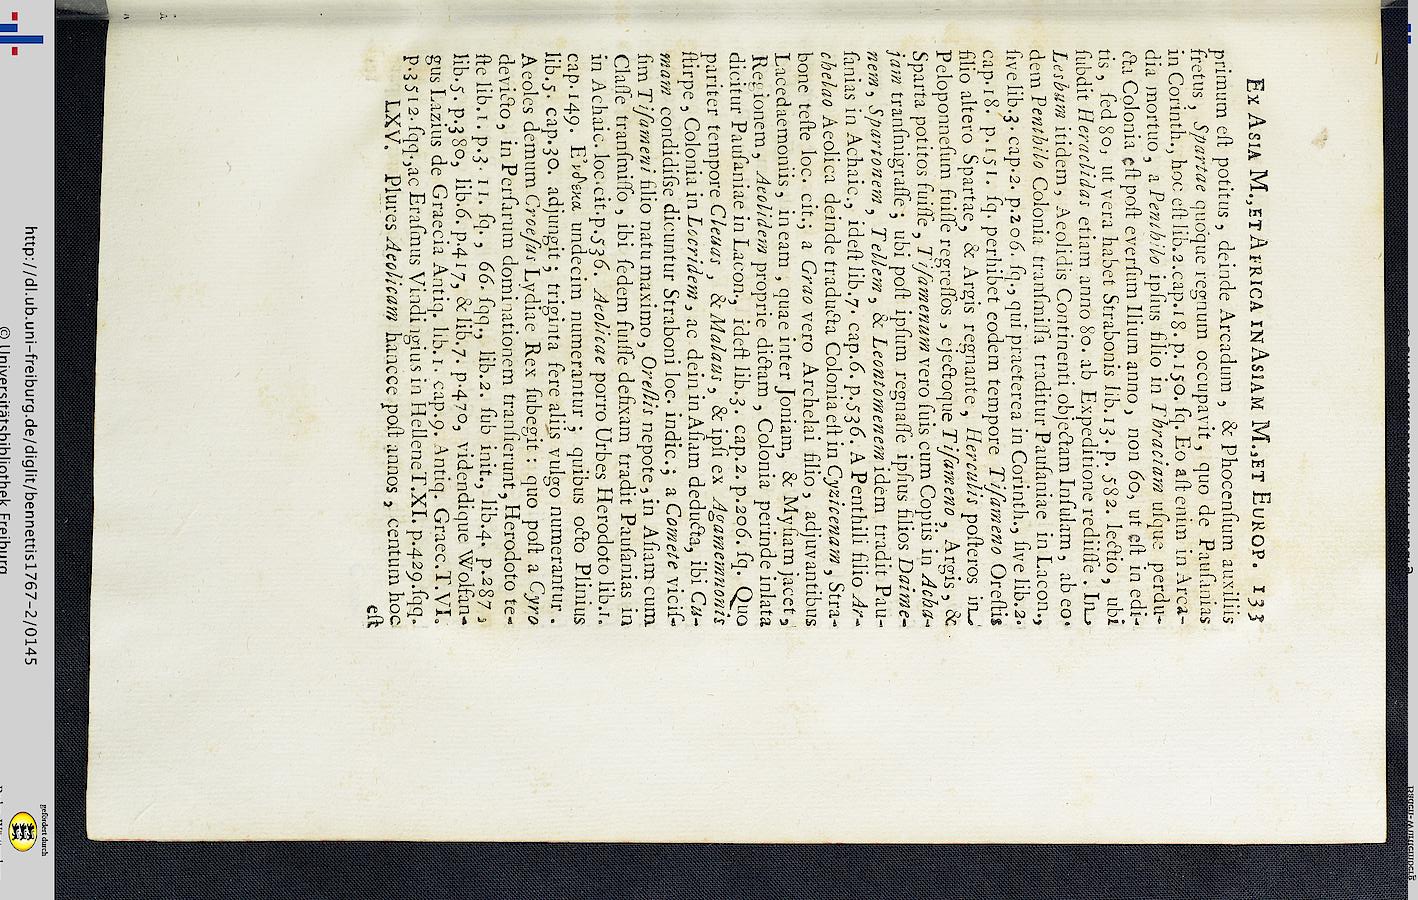 Ex Asia M., et Africa in Asiam M., et Europ. 133
primum eſt potitus, deinde Arcadum, & Phocenſium auxiliis
fretus, Spartae quoque regnum occupavit, quo de Pauſanias
in Corinth., hoc eſt lib.2.cap.18. p.150.ſq. Eo aſt enim in Arca-
dia mortuo, a Penthilo ipſius filio in Thraciam uſque perdu-
cta Colonia eſt poſt everſum Ilium anno, non 60, ut eſt in edi-
tis, ſed 80, ut vera habet Strabonis lib.13. p. 582. lectio, ubi
ſubdit Heraclidas etiam anno 80. ab Expeditione rediiſſe. In
Lesbum itidem, Aeolidis Continenti objectam Inſulam, ab eo-
dem Penthilo Colonia tranſmiſſa traditur Pauſaniae in Lacon.,
ſive lib.3. cap.2. p.206. ſq., qui praeterea in Corinth., ſive lib.2.
cap.18. p.151. ſq. perhibet eodem tempore Tiſameno Oreſtis
filio altero Spartae, & Argis regnante, Herculis poſteros in
Peloponneſum fuiſſe regreſſos, ejectoque Tiſameno, Argis, &
Sparta potitos fuiſſe, Tiſamenum vero ſuis cum Copiis in Acha-
jam tranſmigraſſe; ubi poſt ipſum regnaſſe ipſius filios Daime-
nem, Spartonem, Tellem, & Leontomenem idem tradit Pau-
ſanias in Achaic., ideſt lib.7. cap.6. p.536. A Penthili filio Ar-
chelao Aeolica deinde traducta Colonia eſt in Cyzicenam, Stra-
bone teſte loc. cit.; a Grao vero Archelai filio, adjuvantibus
Lacedaemoniis, in eam, quae inter Joniam, & Myſiam jacet,
Regionem, Aeolidem proprie dictam, Colonia perinde inlata
dicitur Pauſaniae in Lacon., ideſt lib.3. cap.2. p.206. ſq. Quo
pariter tempore Cleus, & Malaus, & ipſi ex Agamemnonis
ſtirpe, Colonia in Locridem, ac dein in Aſiam deducta, ibi Cu-
mam condidiſse dicuntur Straboni loc. indic.; a Comete viciſ-
ſim Tiſameni filio natu maximo, Oreſtis nepote, in Aſiam cum
Claſſe tranſmiſſo, ibi ſedem fuiſſe defixam tradit Pauſanias in
in Achaic. loc.cit.p.536. Aeolicae porro Urbes Herodoto lib.1.
cap.149. Ἕνδεκα undecim numerantur; quibus octo Plinius
lib.5. cap.30. adjungit; triginta fere aliis vulgo numerantur.
Aeoles demum Croeſus Lydiae Rex ſubegit: quo poſt a Cyro
devicto, in Perſarum dominationem tranſierunt, Herodoto te-
ſte lib.1. p.3. 11. ſq., 66. ſqq., lib.2. ſub init., lib.4. p.287,
lib.5. p.380, lib.6. p.417, & lib.7. p.470, videndique Wolfan-
gus Lazius de Graecia Antiq. lib.1. cap.9. Antiq. Graec.T.VI.
p.3512.ſqq., ac Eraſmus Vindingius in Hellene T.XI. p.429.ſqq.
LXV. Plures Aeolicam hancce poſt annos, centum hoc
eſt
http://dl.ub.uni-freiburg.de/diglit/bennettis1767-2/0145
© Universitätsbibliothek Freiburg
gefördert durch